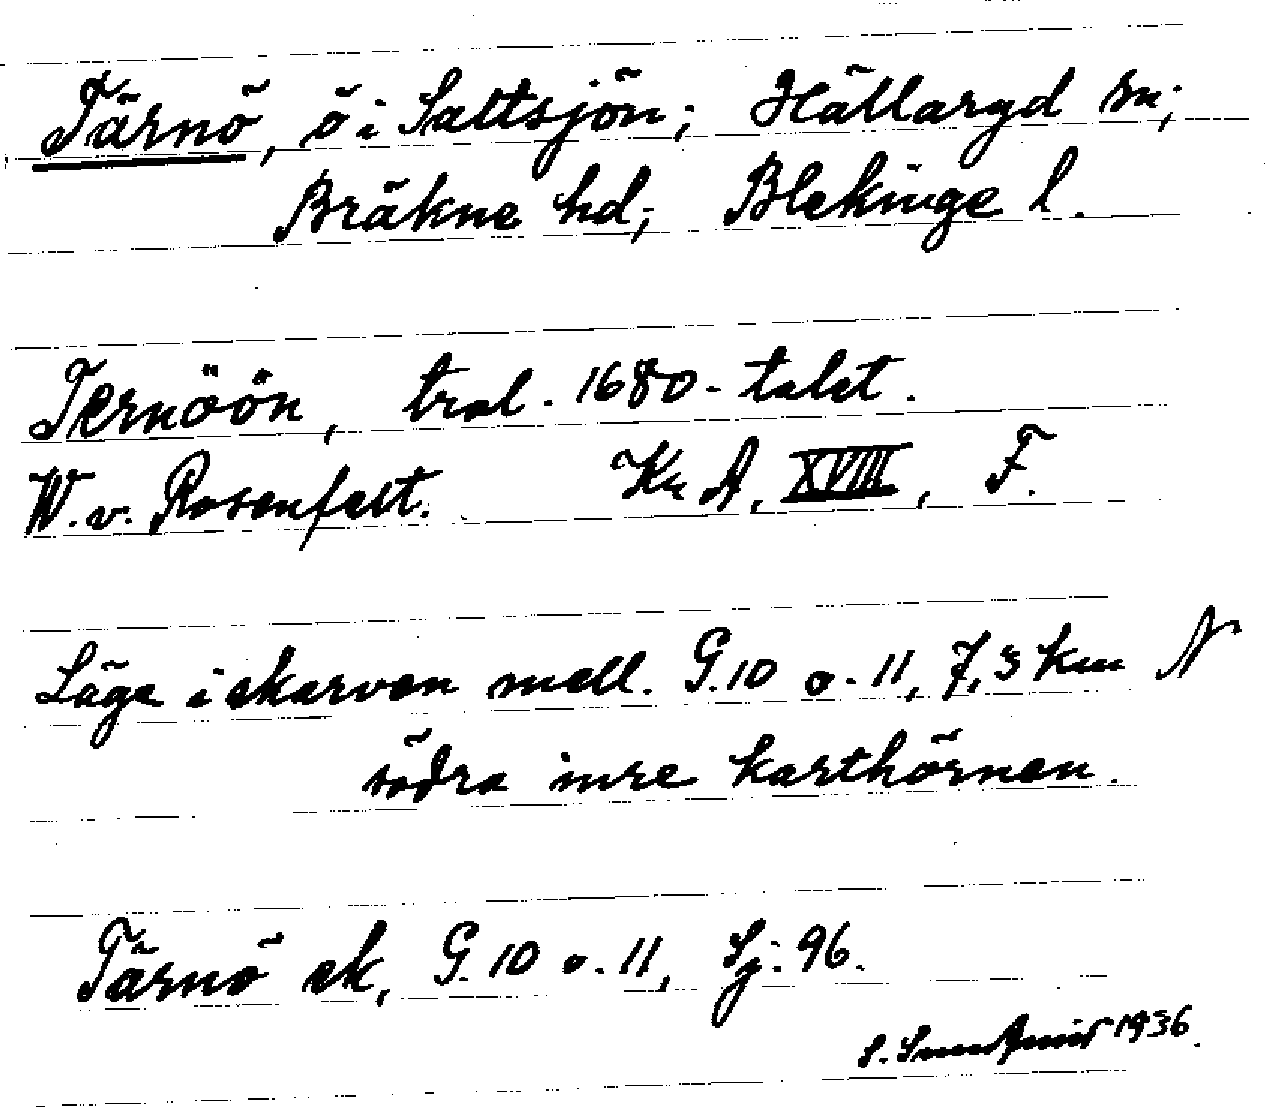 Tärnö, ö i Saltsjön; Hällaryd sn;
Bräkne hd; Blekinge l.
Ternöön, tral. 1680-talet.
W. v. Rosenfelt. KrA, XVIII, F.
Läge i skarven mell. G. 10 o. 11, 7,3 km N
södra inre karthörnen.
Tärnö ek, G. 10 o. 11, Sj: 96.
S. 1936.